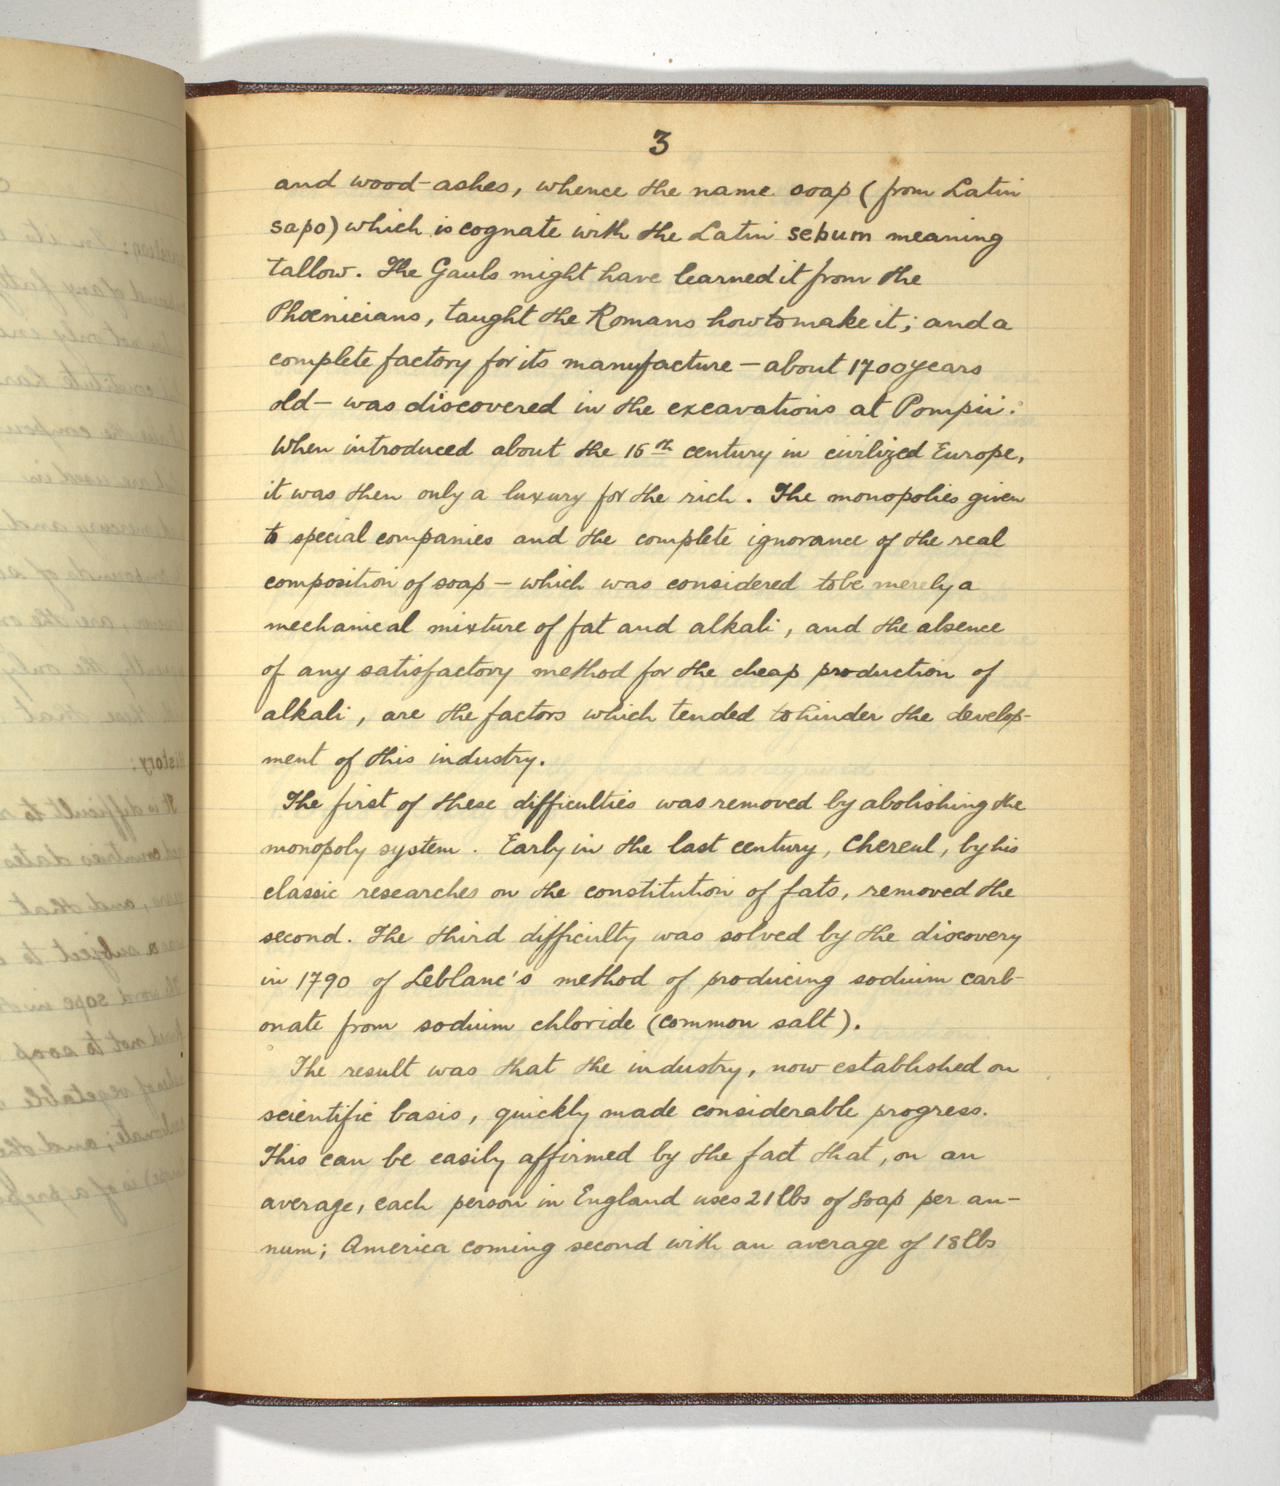 3
and wood-ashes, whence the name soap (from Latin
sapo) which is cognate with the Latin sebum meaning
tallow. The Gauls might have learned it from the
Phœnicians, taught the Romans how to make it; and a
complete factory for its manufacture — about 1700 years
old — was discovered in the excavations at Pompii.
When introduced about the 15th century in civilized Europe,
it was then only a luxury for the rich. The monopolies given
to special companies and the complete ignorance of the real
composition of soap — which was considered to be merely a
mechanical mixture of fat and alkali, and the absence
of any satisfactory method for the cheap production of
alkali, are the factors which tended to hinder the develop-
ment of this industry.
The first of these difficulties was removed by abolishing the
monopoly system. Early in the last century, Chereul, by his
classic researches on the constitution of fats, removed the
second. The third difficulty was solved by the discovery
in 1790 of Leblanc's method of producing sodium carb-
onate from sodium chloride (common salt).
The result was that the industry, now established on
scientific basis, quickly made considerable progress.
This can be easily affirmed by the fact that, on an
average, each person in England uses 21 lbs of soap per an-
num; America coming second with an average of 18 lbs